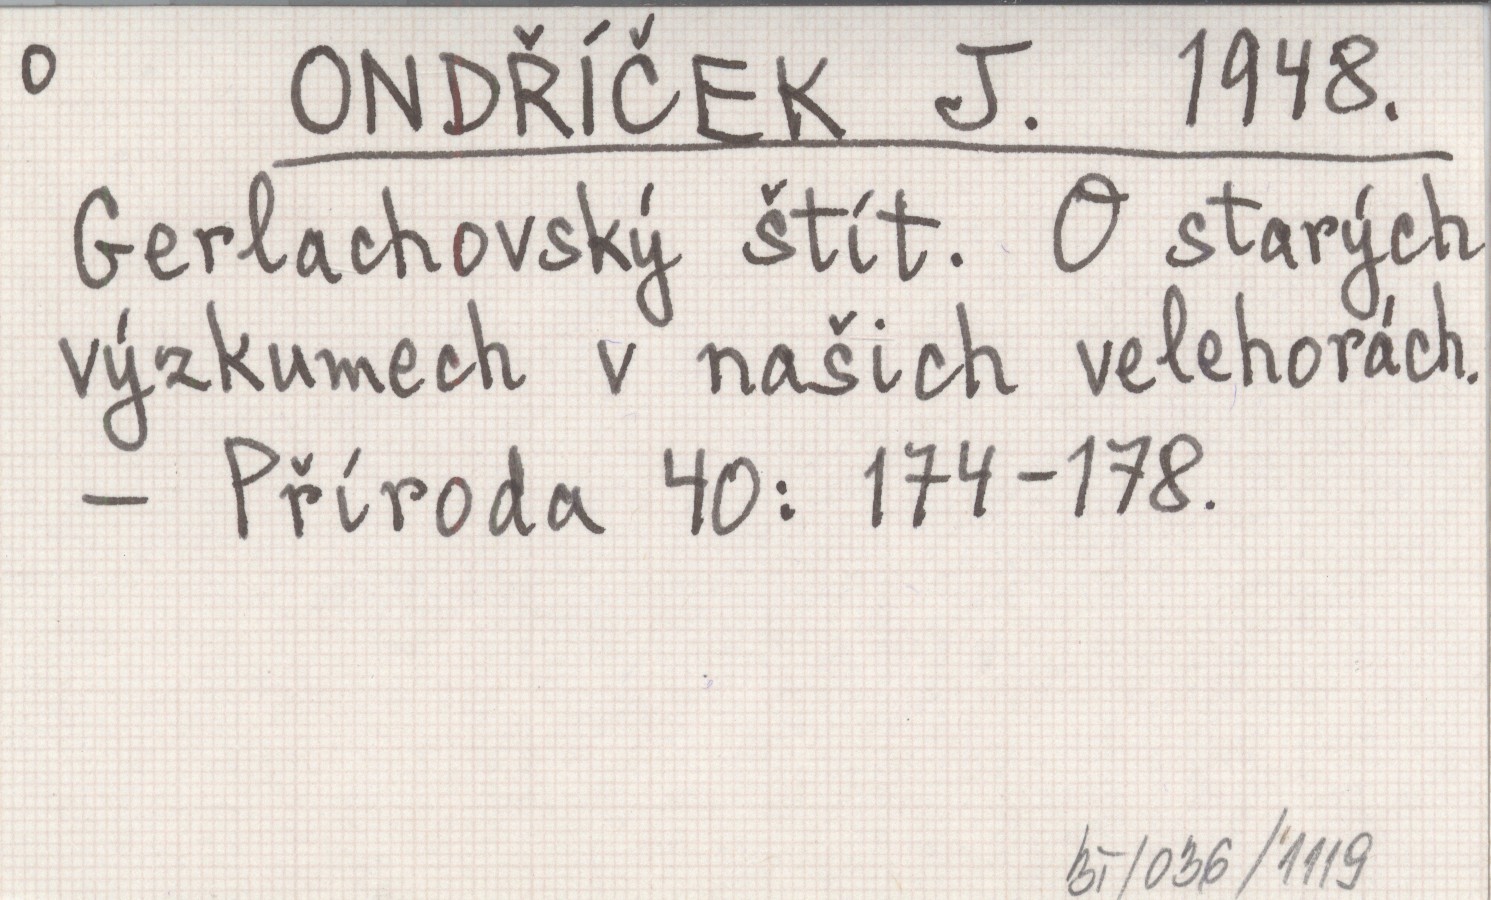 O ONDŘÍČEK J. 1948.
Gerlachovský štít. O starých
výzkumech v našich velehorách.
— Příroda 40: 174-178.
/036/1119